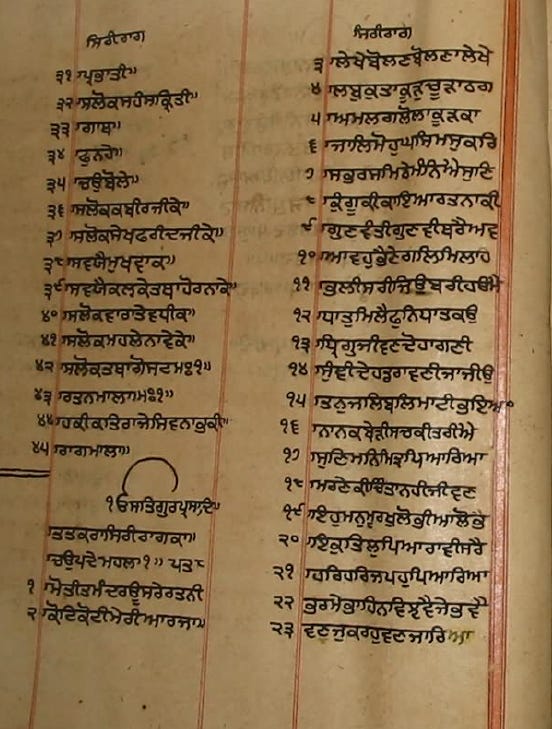 ਸਿਰੀਰਾਗ
੩੧ ਪ੍ਰਭਾਤੀ॥
੩੨ ਸਲੋਕਸਹੰਸਕ੍ਰਿਤੀ॥
੩੩ ਗਾਥਾ॥
੩੪ ਫੁਨਹੇ॥
੩੫ ਚਉਬੋਲੇ॥
੩੬ ਸਲੋਕਕਬੀਰਜੀਕੇ॥
੩੭ ਸਲੋਕਸੇਖਫਰੀਦਜੀਕੇ॥
੩੮ ਸਵਯੈਮੁਖਵਾਕ॥
੩੯ ਸਵਯੈਕਲੑਕੇਤਥਾਹੋਰਨਾਕੇ॥
੪੦ ਸਲੋਕਵਾਰਾਤੇਵਧੀਕ॥
੪੧ ਸਲੋਕਮਹਲੇਨਾਵੇਕੇ॥
੪੨ ਸਲੋਕਤਥਾਗੋਸਟਮਃ੧॥
੪੩ ਰਤਨਮਾਲਾਮਃ੧॥
੪੪ ਹਕੀਕਤਿਰਾਜੇਸਿਵਨਾਭਕੀ॥
੪੫ ਰਾਗਮਾਲਾ॥
ੴਸਤਿਗੁਰਪ੍ਰਸਾਦਿ॥
ਤਤਕਰਾਸਿਰੀਰਾਗਕਾ॥
ਚਉਪਦੇਮਹਲਾ੧॥ ਪਤ੍ਰ
੧ ਮੋਤੀਤਮੰਦਰਊਸਰੇਰਤਨੀ
੨ ਕੋਟਿਕੋਟੀਮੇਰੀਆਰਜਾ॥
ਸਿਰੀਰਾਗ
੩ ਲੇਖੈਬੋਲਣਬੋਲਣਾਲੇਖੈ
੪ ਲਬੁਕੁਤਾਕੂੜੁਚੂਹੜਾਠਗ
੫ ਅਮਲਗਲੋਲਾਕੂੜਕਾ
੬ ਜਾਲਿਮੋਹੁਘਸਿਮਸੁਕਰਿ
੭ ਸਭਰਸਮਿਠੇਮੰਨਿਐਸੁਣਿ
੮ ਕੁੰਗੂਕੀਕਾਂਇਆਰਤਨਾਕੀ
੯ ਗੁਣਵੰਤੀਗੁਣਵੀਥਰੈਅਵ
੧੦ ਆਵਹੁਭੈਣੇਗਲਿਮਿਲਹ
੧੧ ਭਲੀਸਰੀਜਿਉਬਰੀਹਉਮੈ
੧੨ ਧਾਤੁਮਿਲੈਫੁਨਿਧਾਤਕਉ
੧੩ ਧ੍ਰਿਗੁਜੀਵਣਦੋਹਾਗਣੀ
੧੪ ਸੁੰਞੀਦੇਹਡਰਾਵਣੀਜਾਜੀਉ
੧੫ ਤਨੁਜਲਿਬਲਿਮਾਟੀਭਇਆ
੧੬ ਨਾਨਕਬੇੜੀਸਚਕੀਤਰੀਐ
੧੭ ਸੁਣਿਮਨਿਮਿਤ੍ਰਪਿਆਰਿਆ
੧੮ ਮਰਣੈਕੀਚਿੰਤਾਨਹੀਜੀਵਣ
੧੯ ਇਹੁਮਨੁਮੂਰਖੁਲੋਭੀਆਲੋਭੇ
੨੦ ਇਕੁਤਿਲੁਪਿਆਰਾਵੀਸਰੈ
੨੧ ਹਰਿਹਰਿਜਪਹੁਪਿਆਰਿਆ
੨੨ ਭਰਮੇਭਾਹਿਨਵਿਝਵੈਜੇਭਵੈ
੨੩ ਵਣਜੁਕਰਹੁਵਣਜਾਰਿਆ